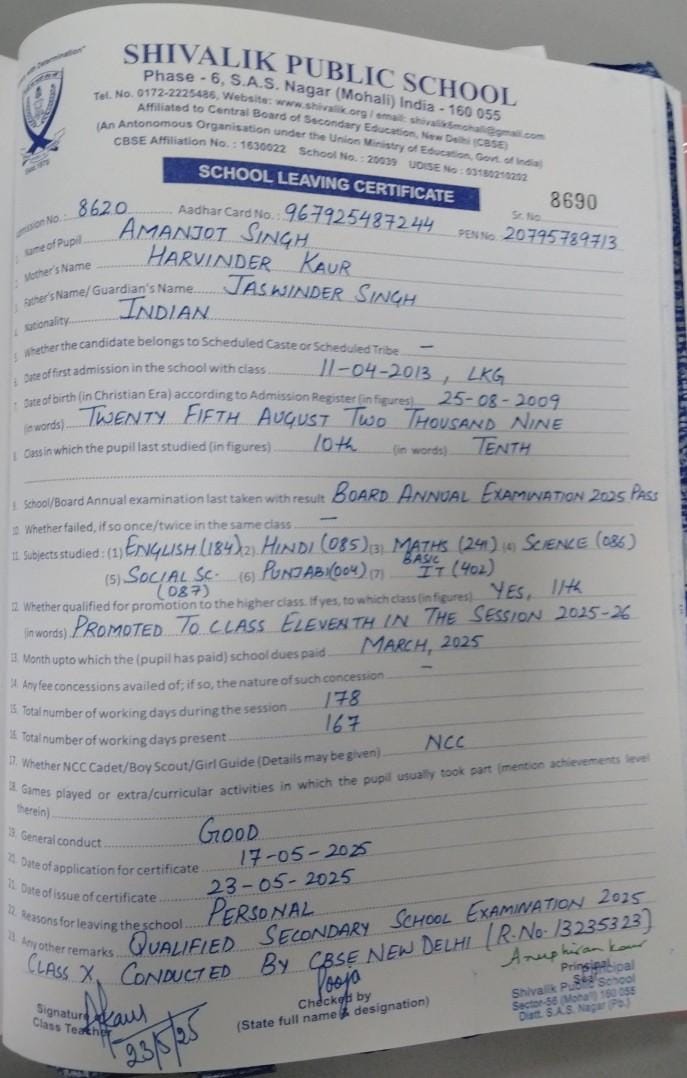 SHIVALIK PUBLIC SCHOOL
Phase - 6, S.A.S. Nagar (Mohali) India - 160 055
Tel. No. 0172-2225486, Website: www.shivalik.org / email: shivalik6mohali@gmail.com
Affiliated to Central Board of Secondary Education, New Delhi (CBSE)
(An Antonomous Organisation under the Union Ministry of Education, Govt. of India)
CBSE Affiliation No. : 1630022 School No. : 20039 UDISE No : 03180210202
SCHOOL LEAVING CERTIFICATE
Sr. No. 8690
Admission No.: 8620 Aadhar Card No.: 967925487244 PEN No. 20795789713
1. Name of Pupil AMANJOT SINGH
2. Mother's Name HARVINDER KAUR
3. Father's Name/ Guardian's Name JASWINDER SINGH
4. Nationality INDIAN
5. Whether the candidate belongs to Scheduled Caste or Scheduled Tribe –
6. Date of first admission in the school with class 11-04-2013, LKG
7. Date of birth (in Christian Era) according to Admission Register (in figures) 25-08-2009
(in words) TWENTY FIFTH AUGUST TWO THOUSAND NINE
8. Class in which the pupil last studied (in figures) 10th (in words) TENTH
9. School/Board Annual examination last taken with result BOARD ANNUAL EXAMINATION 2025 PASS
10. Whether failed, if so once/twice in the same class –
11. Subjects studied : (1) ENGLISH (184) (2) HINDI (085) (3) MATHS BASIC (241) (4) SCIENCE (086)
(5) SOCIAL SC. (087) (6) PUNJABI (004) (7) IT (402)
12. Whether qualified for promotion to the higher class. If yes, to which class (in figures) YES, 11th
(in words) PROMOTED TO CLASS ELEVENTH IN THE SESSION 2025-26
13. Month upto which the (pupil has paid) school dues paid MARCH, 2025
14. Any fee concessions availed of; if so, the nature of such concession –
15. Total number of working days during the session 178
16. Total number of working days present 167
17. Whether NCC Cadet/Boy Scout/Girl Guide (Details may be given) NCC
18. Games played or extra/curricular activities in which the pupil usually took part (mention achievements level
therein)
19. General conduct GOOD
20. Date of application for certificate 17-05-2025
21. Date of issue of certificate 23-05-2025
22. Reasons for leaving the school PERSONAL
23. Any other remarks QUALIFIED SECONDARY SCHOOL EXAMINATION 2025
CLASS X, CONDUCTED BY CBSE NEW DELHI (R.No. 13235323)
Signature
Class Teacher
23/5/25
Pooja
Checked by
(State full name & designation)
Anuphiran kaur
Principal
Seal
Principal
Shivalik Public School
Sector-56 (Mohali) 160 055
Distt. S.A.S. Nagar (Pb.)